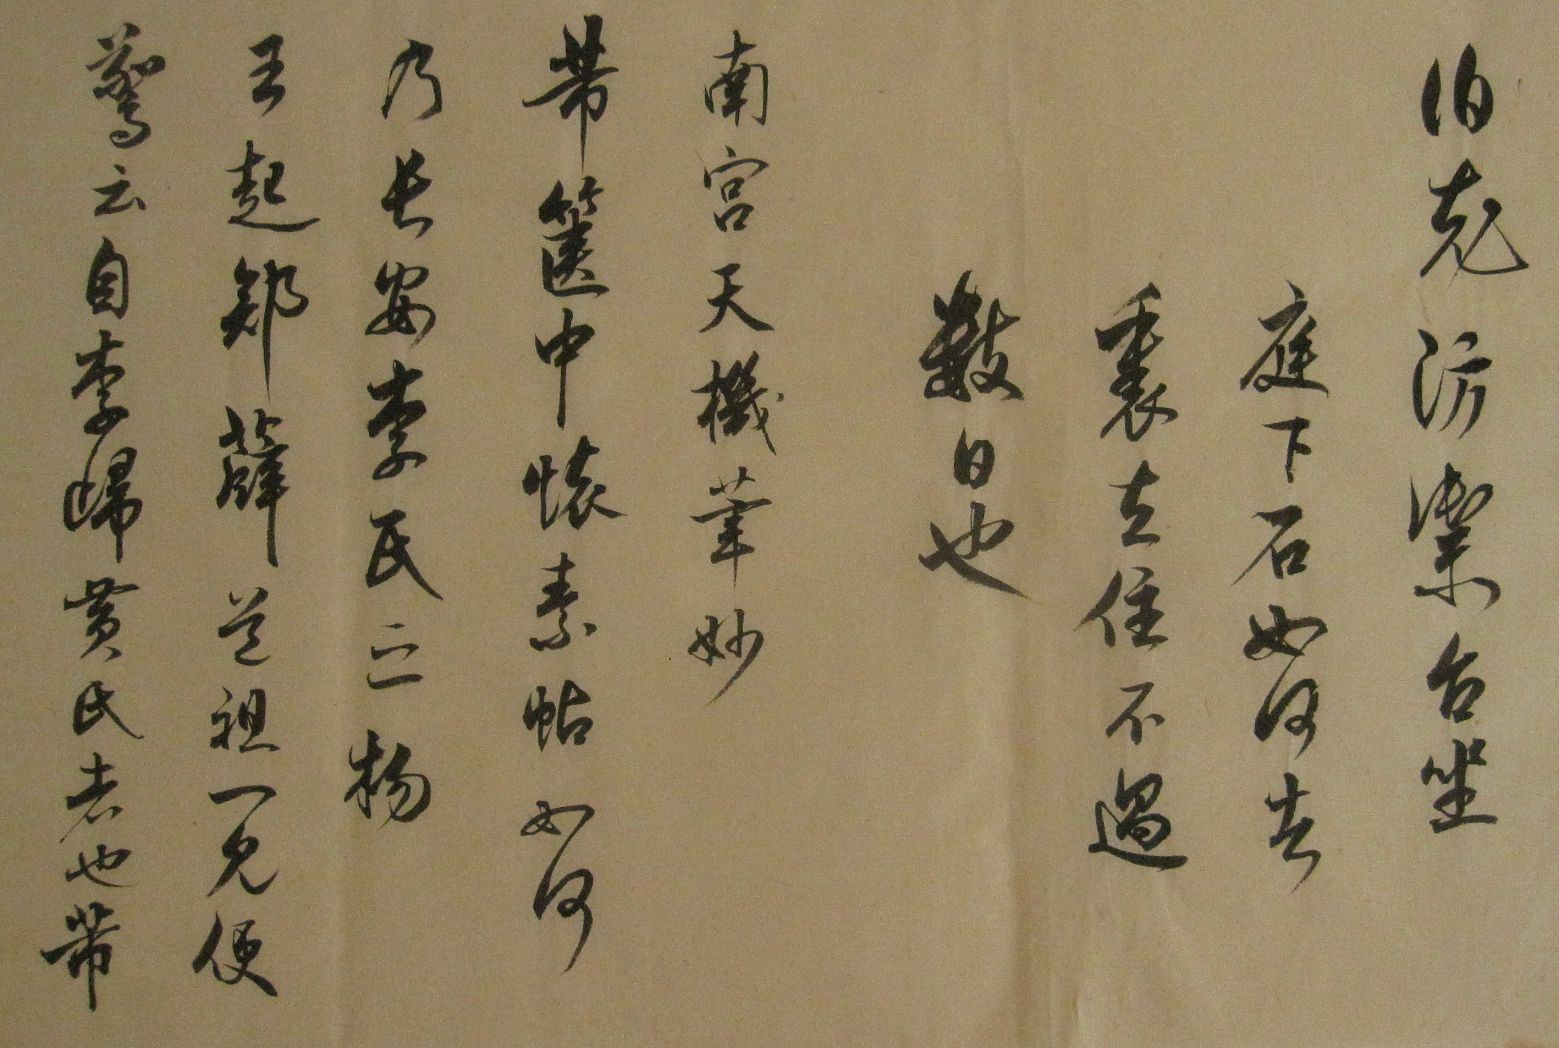 伯充防禦台坐
庭下石如何去
裹去住不過
數日也
南宮天機筆妙
芾篋中懷素帖如何
乃長安李氏之物
王起郎薛道祖一見便
驚云自李歸黃氏者也芾